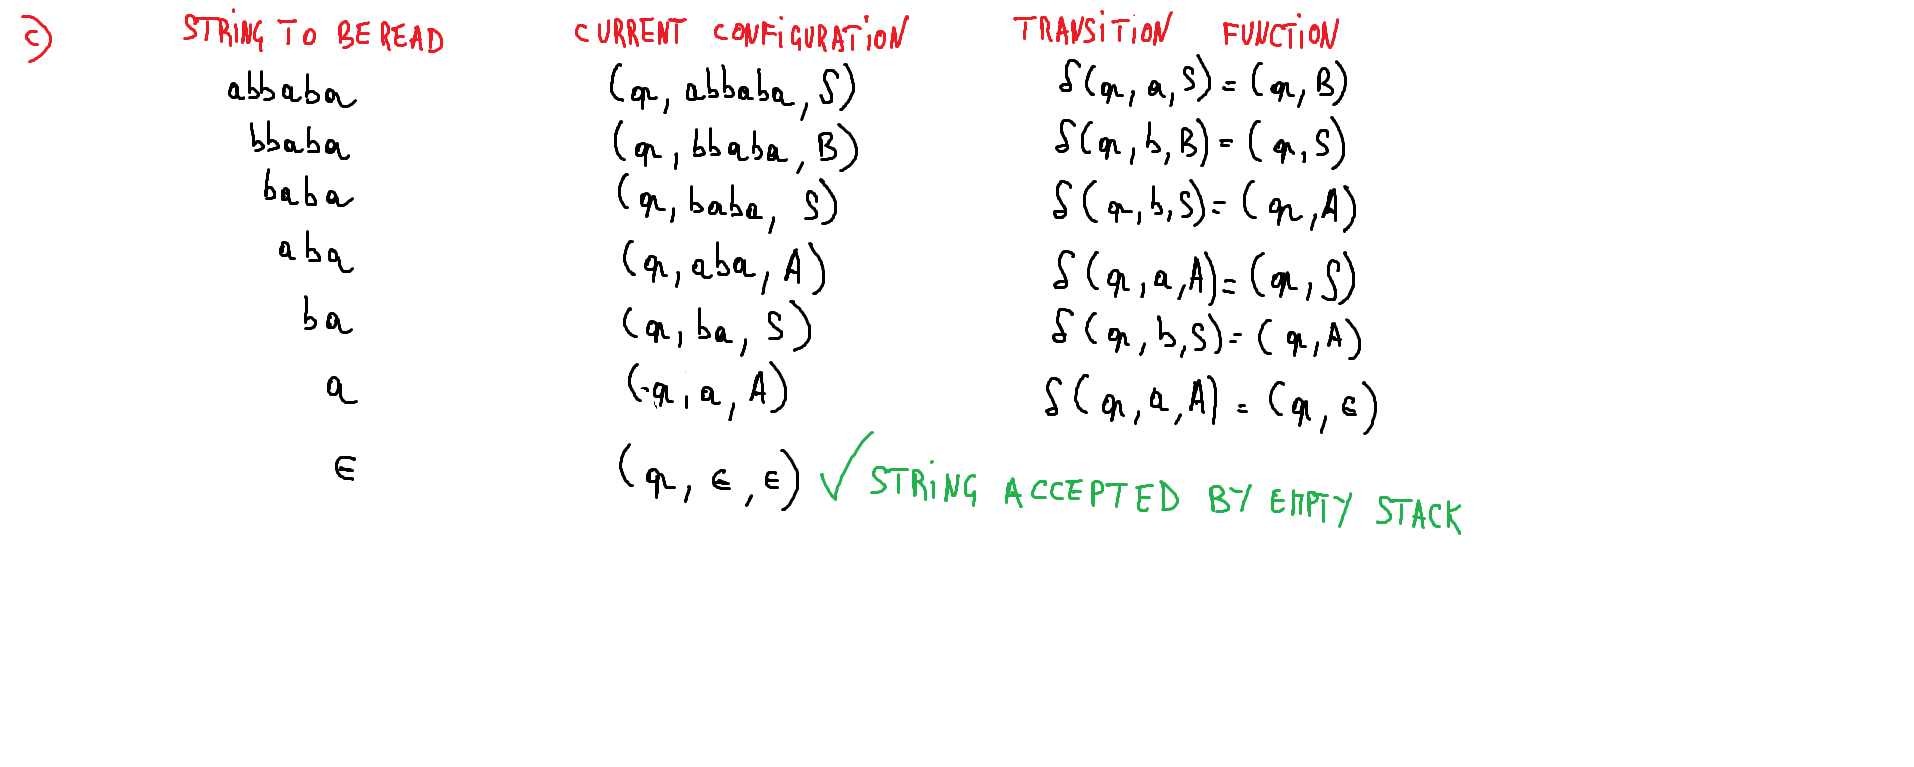 c) STRING TO BE READ CURRENT CONFIGURATION TRANSITION FUNCTION
abbaba (q, abbaba, S) δ(q, a, S) = (q, B)
bbaba (q, bbaba, B) δ(q, b, B) = (q, S)
baba (q, baba, S) δ(q, b, S) = (q, A)
aba (q, aba, A) δ(q, a, A) = (q, S)
ba (q, ba, S) δ(q, b, S) = (q, A)
a (q, a, A) δ(q, a, A) = (q, ϵ)
ϵ (q, ϵ, ϵ) ✓ STRING ACCEPTED BY EMPTY STACK